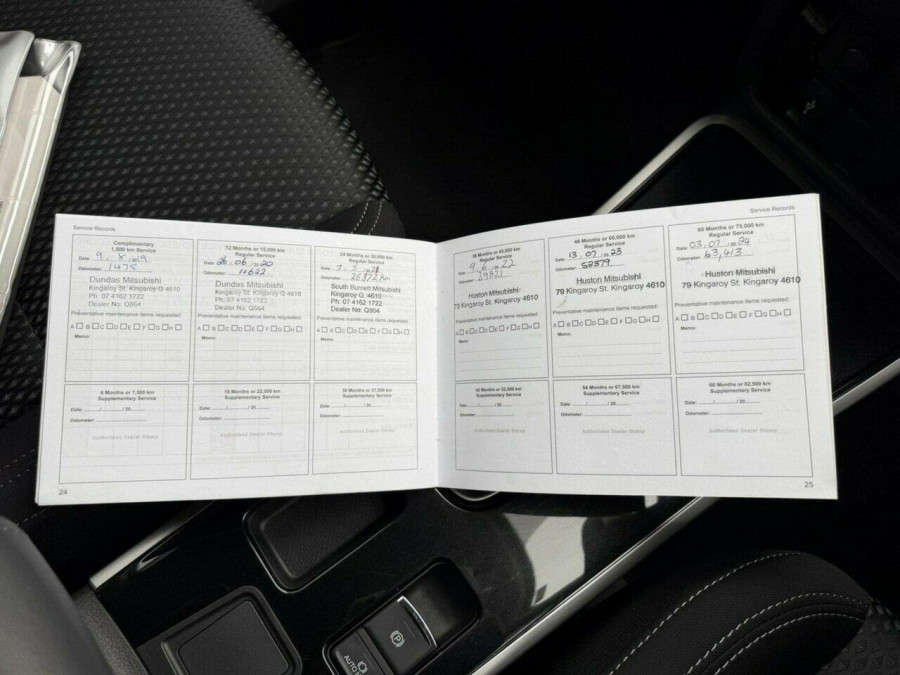 Service Records
Complimentary
1,500 km Service
Date 9.8.2019
Odometer: 1475
Dundas Mitsubishi
Kingaroy St. Kingaroy Q 4610
Ph: 07 4162 1722
Dealer No: Q864
Preventative maintenance items requested:
A B C D E F G H
Memo:
12 Months or 15,000 km
Regular Service
Date 26.06.2020
Odometer: 11622
Dundas Mitsubishi
Kingaroy St. Kingaroy Q 4610
Ph: 07 4162 1722
Dealer No: Q864
Preventative maintenance items requested:
A B C D E F G H
Memo:
24 Months or 30,000 km
Regular Service
Date
Odometer:
South Burnett Mitsubishi
Kingaroy Q. 4610
Ph: 07 4162 1722
Dealer No: Q864
Preventative maintenance items requested:
A B C D E F G H
Memo:
6 Months or 7,500 km
Supplementary Service
Date: / / 20
Odometer:
Authorised Dealer Stamp
18 Months or 22,500 km
Supplementary Service
Date: / / 20
Odometer:
Authorised Dealer Stamp
30 Months or 37,500 km
Supplementary Service
Date: / / 20
Odometer:
Authorised Dealer Stamp
24
Service Records
36 Months or 45,000 km
Regular Service
Date 9.6.2022
Odometer:
Huston Mitsubishi
79 Kingaroy St. Kingaroy 4610
Preventative maintenance items requested:
A B C D E F G H
Memo:
48 Months or 60,000 km
Regular Service
Date 13.07.2023
Odometer: 52379
Huston Mitsubishi
79 Kingaroy St. Kingaroy 4610
Preventative maintenance items requested:
A B C D E F G H
Memo:
60 Months or 75,000 km
Regular Service
Date 03.07.2024
Odometer: 63,413
Huston Mitsubishi
79 Kingaroy St. Kingaroy 4610
Preventative maintenance items requested:
A B C D E F G H
Memo:
42 Months or 52,500 km
Supplementary Service
Date: / / 20
Odometer:
Authorised Dealer Stamp
54 Months or 67,500 km
Supplementary Service
Date: / / 20
Odometer:
Authorised Dealer Stamp
66 Months or 82,500 km
Supplementary Service
Date: / / 20
Odometer:
Authorised Dealer Stamp
25
P
AUTO